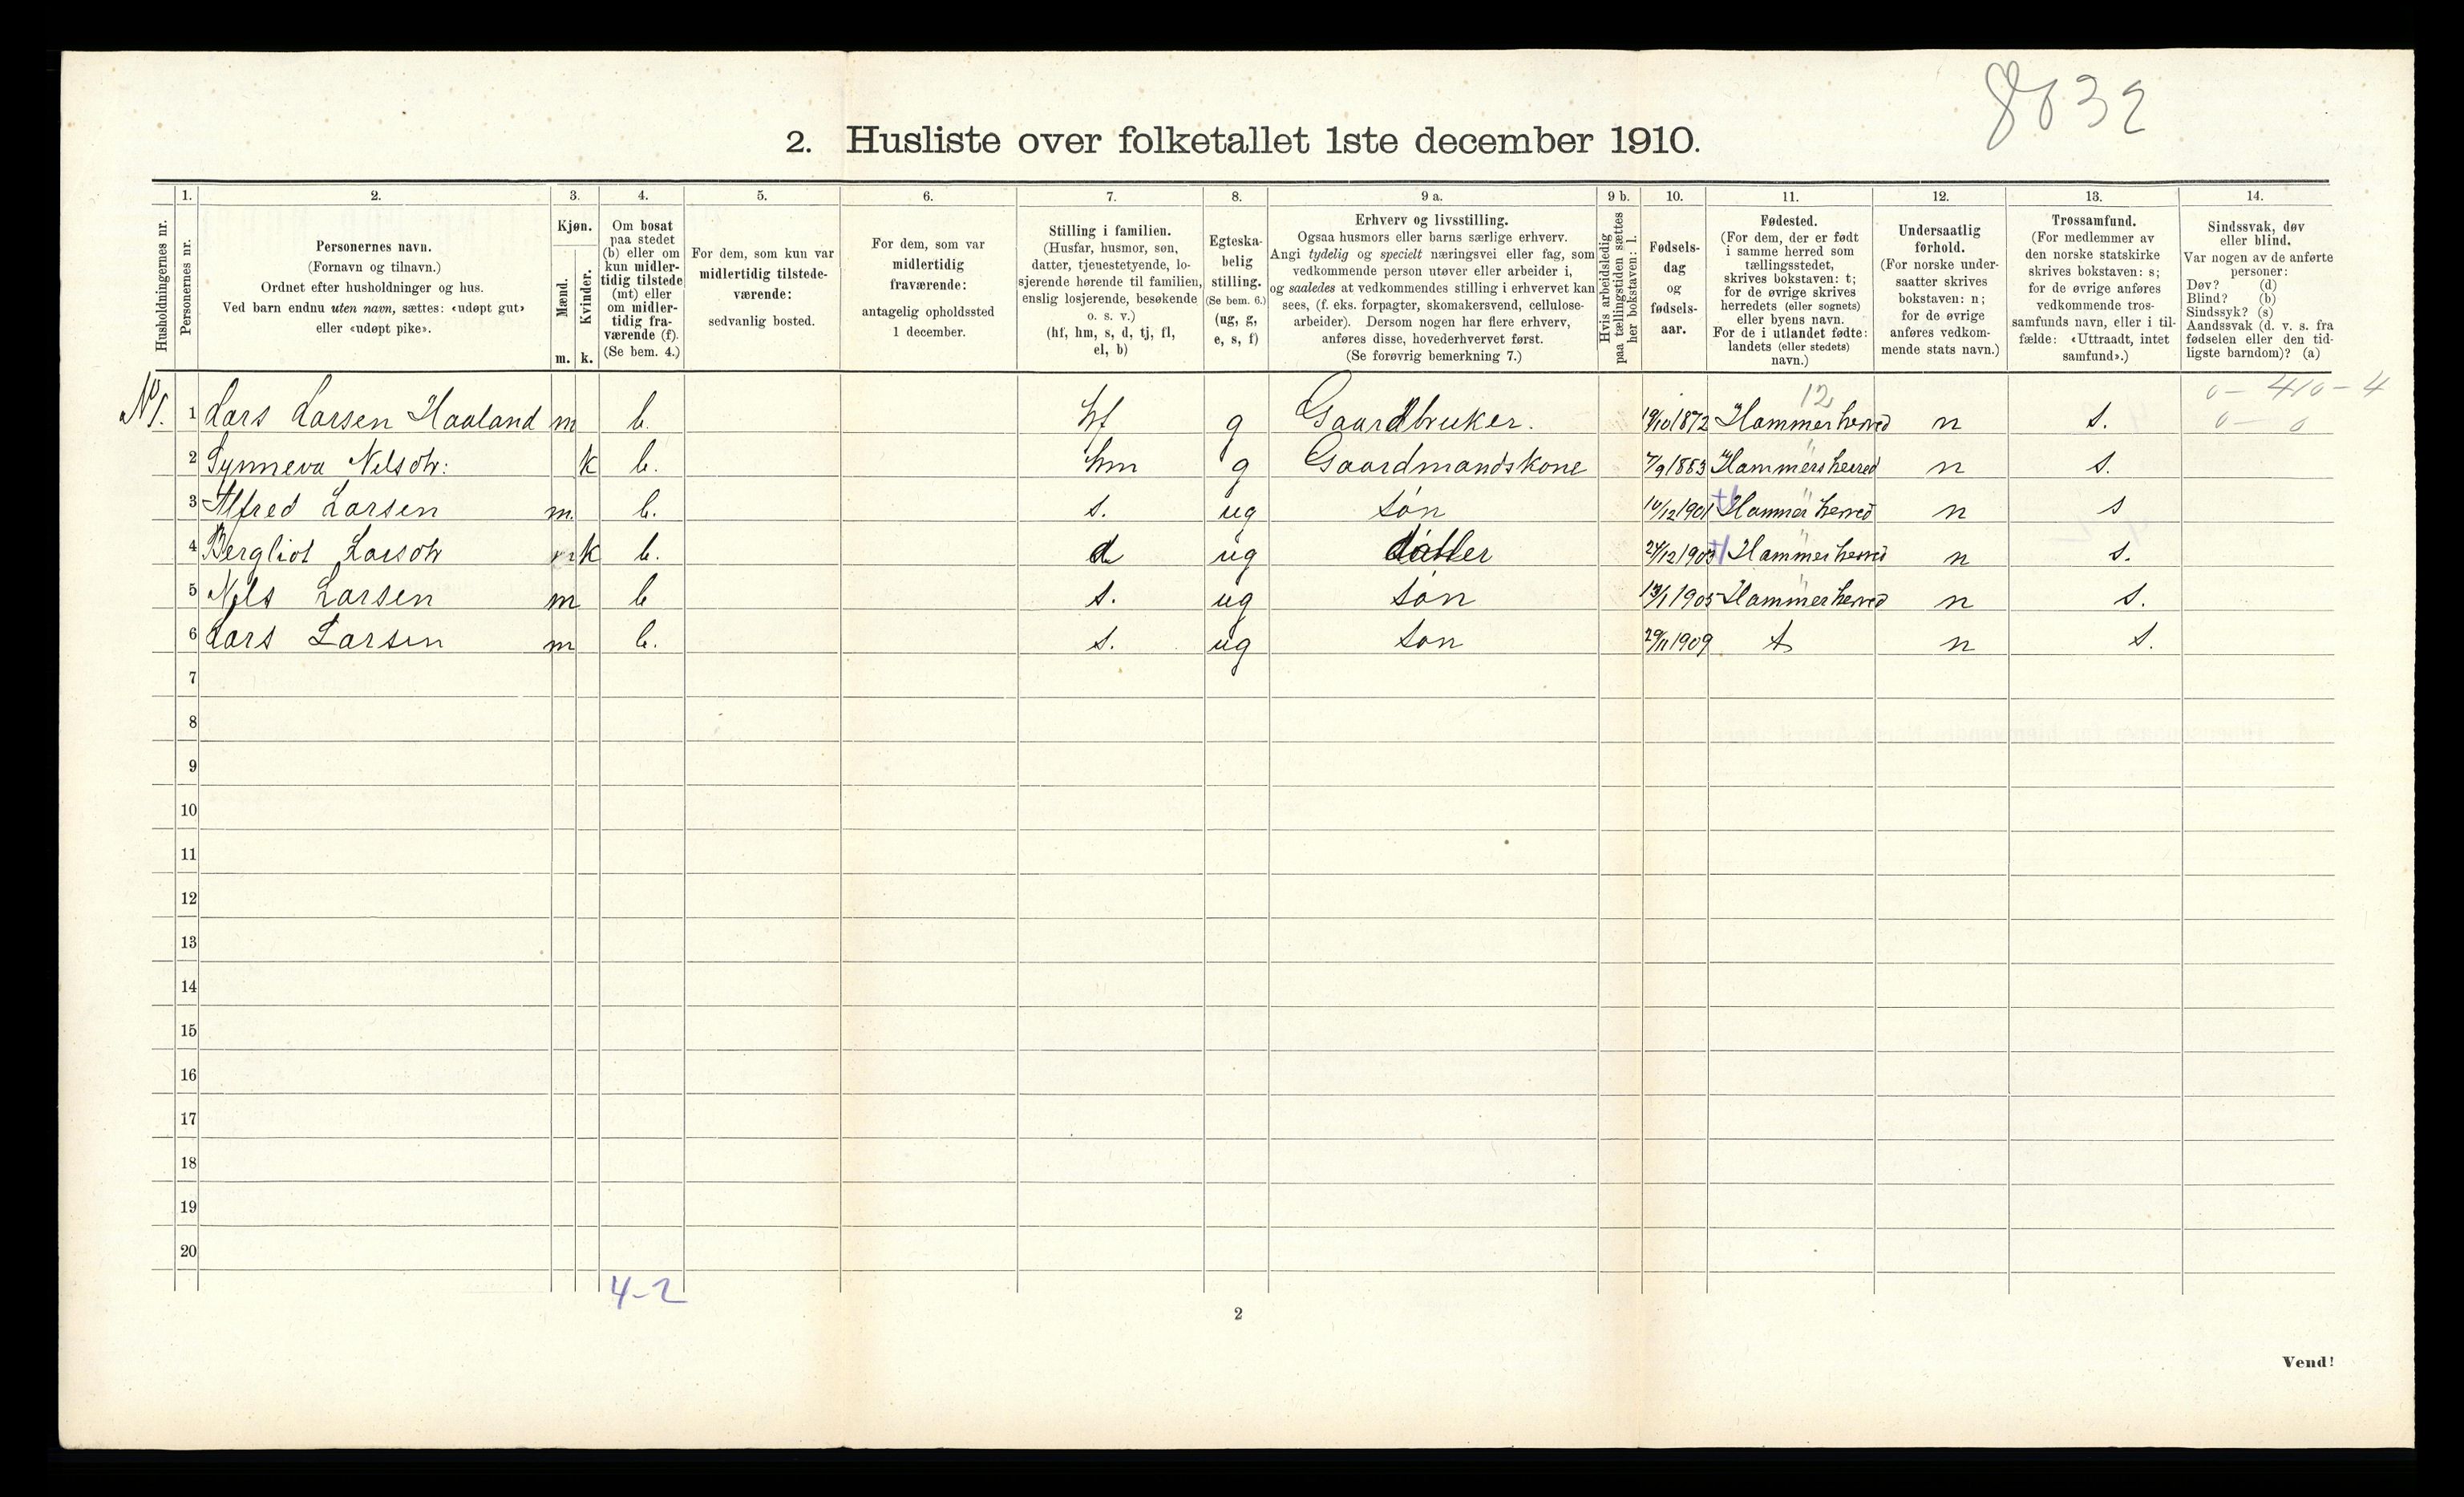 8032
2. Husliste over folketallet 1ste december 1910.
Husholdningernes nr.
1.
Personernes nr.
2.
Personernes navn.
(Fornavn og tilnavn.)
Ordnet efter husholdninger og hus.
Ved barn endnu uten navn, sættes: «udøpt gut»
eller «udøpt pike».
3.
Kjøn.
Mænd.
Kvinder.
m. k.
4.
Om bosat
paa stedet
(b) eller om
kun midler-
tidig tilstede
(mt) eller
om midler-
tidig fra-
værende (f).
(Se bem. 4.)
5.
For dem, som kun var
midlertidig tilstede-
værende:
sedvanlig bosted.
6.
For dem, som var
midlertidig
fraværende:
antagelig opholdssted
1 december.
7.
Stilling i familien.
(Husfar, husmor, søn,
datter, tjenestetyende, lo-
sjerende hørende til familien,
enslig losjerende, besøkende
o. s. v.)
(hf, hm, s, d, tj, fl,
el, b)
8.
Egteska-
belig
stilling.
(Se bem. 6.)
(ug, g,
e, s, f)
9 a.
Erhverv og livsstilling.
Ogsaa husmors eller barns særlige erhverv.
Angi tydelig og specielt næringsvei eller fag, som
vedkommende person utøver eller arbeider i,
og saaledes at vedkommendes stilling i erhvervet kan
sees, (f. eks. forpagter, skomakersvend, cellulose-
arbeider). Dersom nogen har flere erhverv,
anføres disse, hovederhvervet først.
(Se forøvrig bemerkning 7.)
9 b.
Hvis arbeidsledig
paa tællingstiden sættes
her bokstaven: l.
10.
Fødsels-
dag
og
fødsels-
aar.
11.
Fødested.
(For dem, der er født
i samme herred som
tællingsstedet,
skrives bokstaven: t;
for de øvrige skrives
herredets (eller sognets)
eller byens navn.
For de i utlandet fødte:
landets (eller stedets)
navn.)
12.
Undersaatlig
forhold.
(For norske under-
saatter skrives
bokstaven: n;
for de øvrige
anføres vedkom-
mende stats navn.)
13.
Trossamfund.
(For medlemmer av
den norske statskirke
skrives bokstaven: s;
for de øvrige anføres
vedkommende tros-
samfunds navn, eller i til-
fælde: «Uttraadt, intet
samfund».)
14.
Sindssvak, døv
eller blind.
Var nogen av de anførte
personer:
Døv? (d)
Blind? (b)
Sindssyk? (s)
Aandssvak (d. v. s. fra
fødselen eller den tid-
ligste barndom)? (a)
12
0 - 4 / 0 - 4
0 - 0
No 1. 1 Lars Larsen Haaland m b. hf g Gaardbruker. 19/10 1872 Hammer herred n s.
2 Synneva Nelsdtr: k b. hm g Gaardmandskone 7/9 1883 Hammers herred n s.
3 Alfred Larsen m. b. s. ug søn 10/12 1901 Hammer herred n s
4 Bergliot Larsdtr k b. d ug datter 24/12 1903 Hammer herred n s.
5 Nils Larsen m b s. ug søn 13/1 1905 Hammer herred n s.
6 Lars Larsen m b. s. ug søn 29/11 1909 t n s.
7
8
9
10
11
12
13
14
15
16
17
18
19
20
4-2
2
Vend!